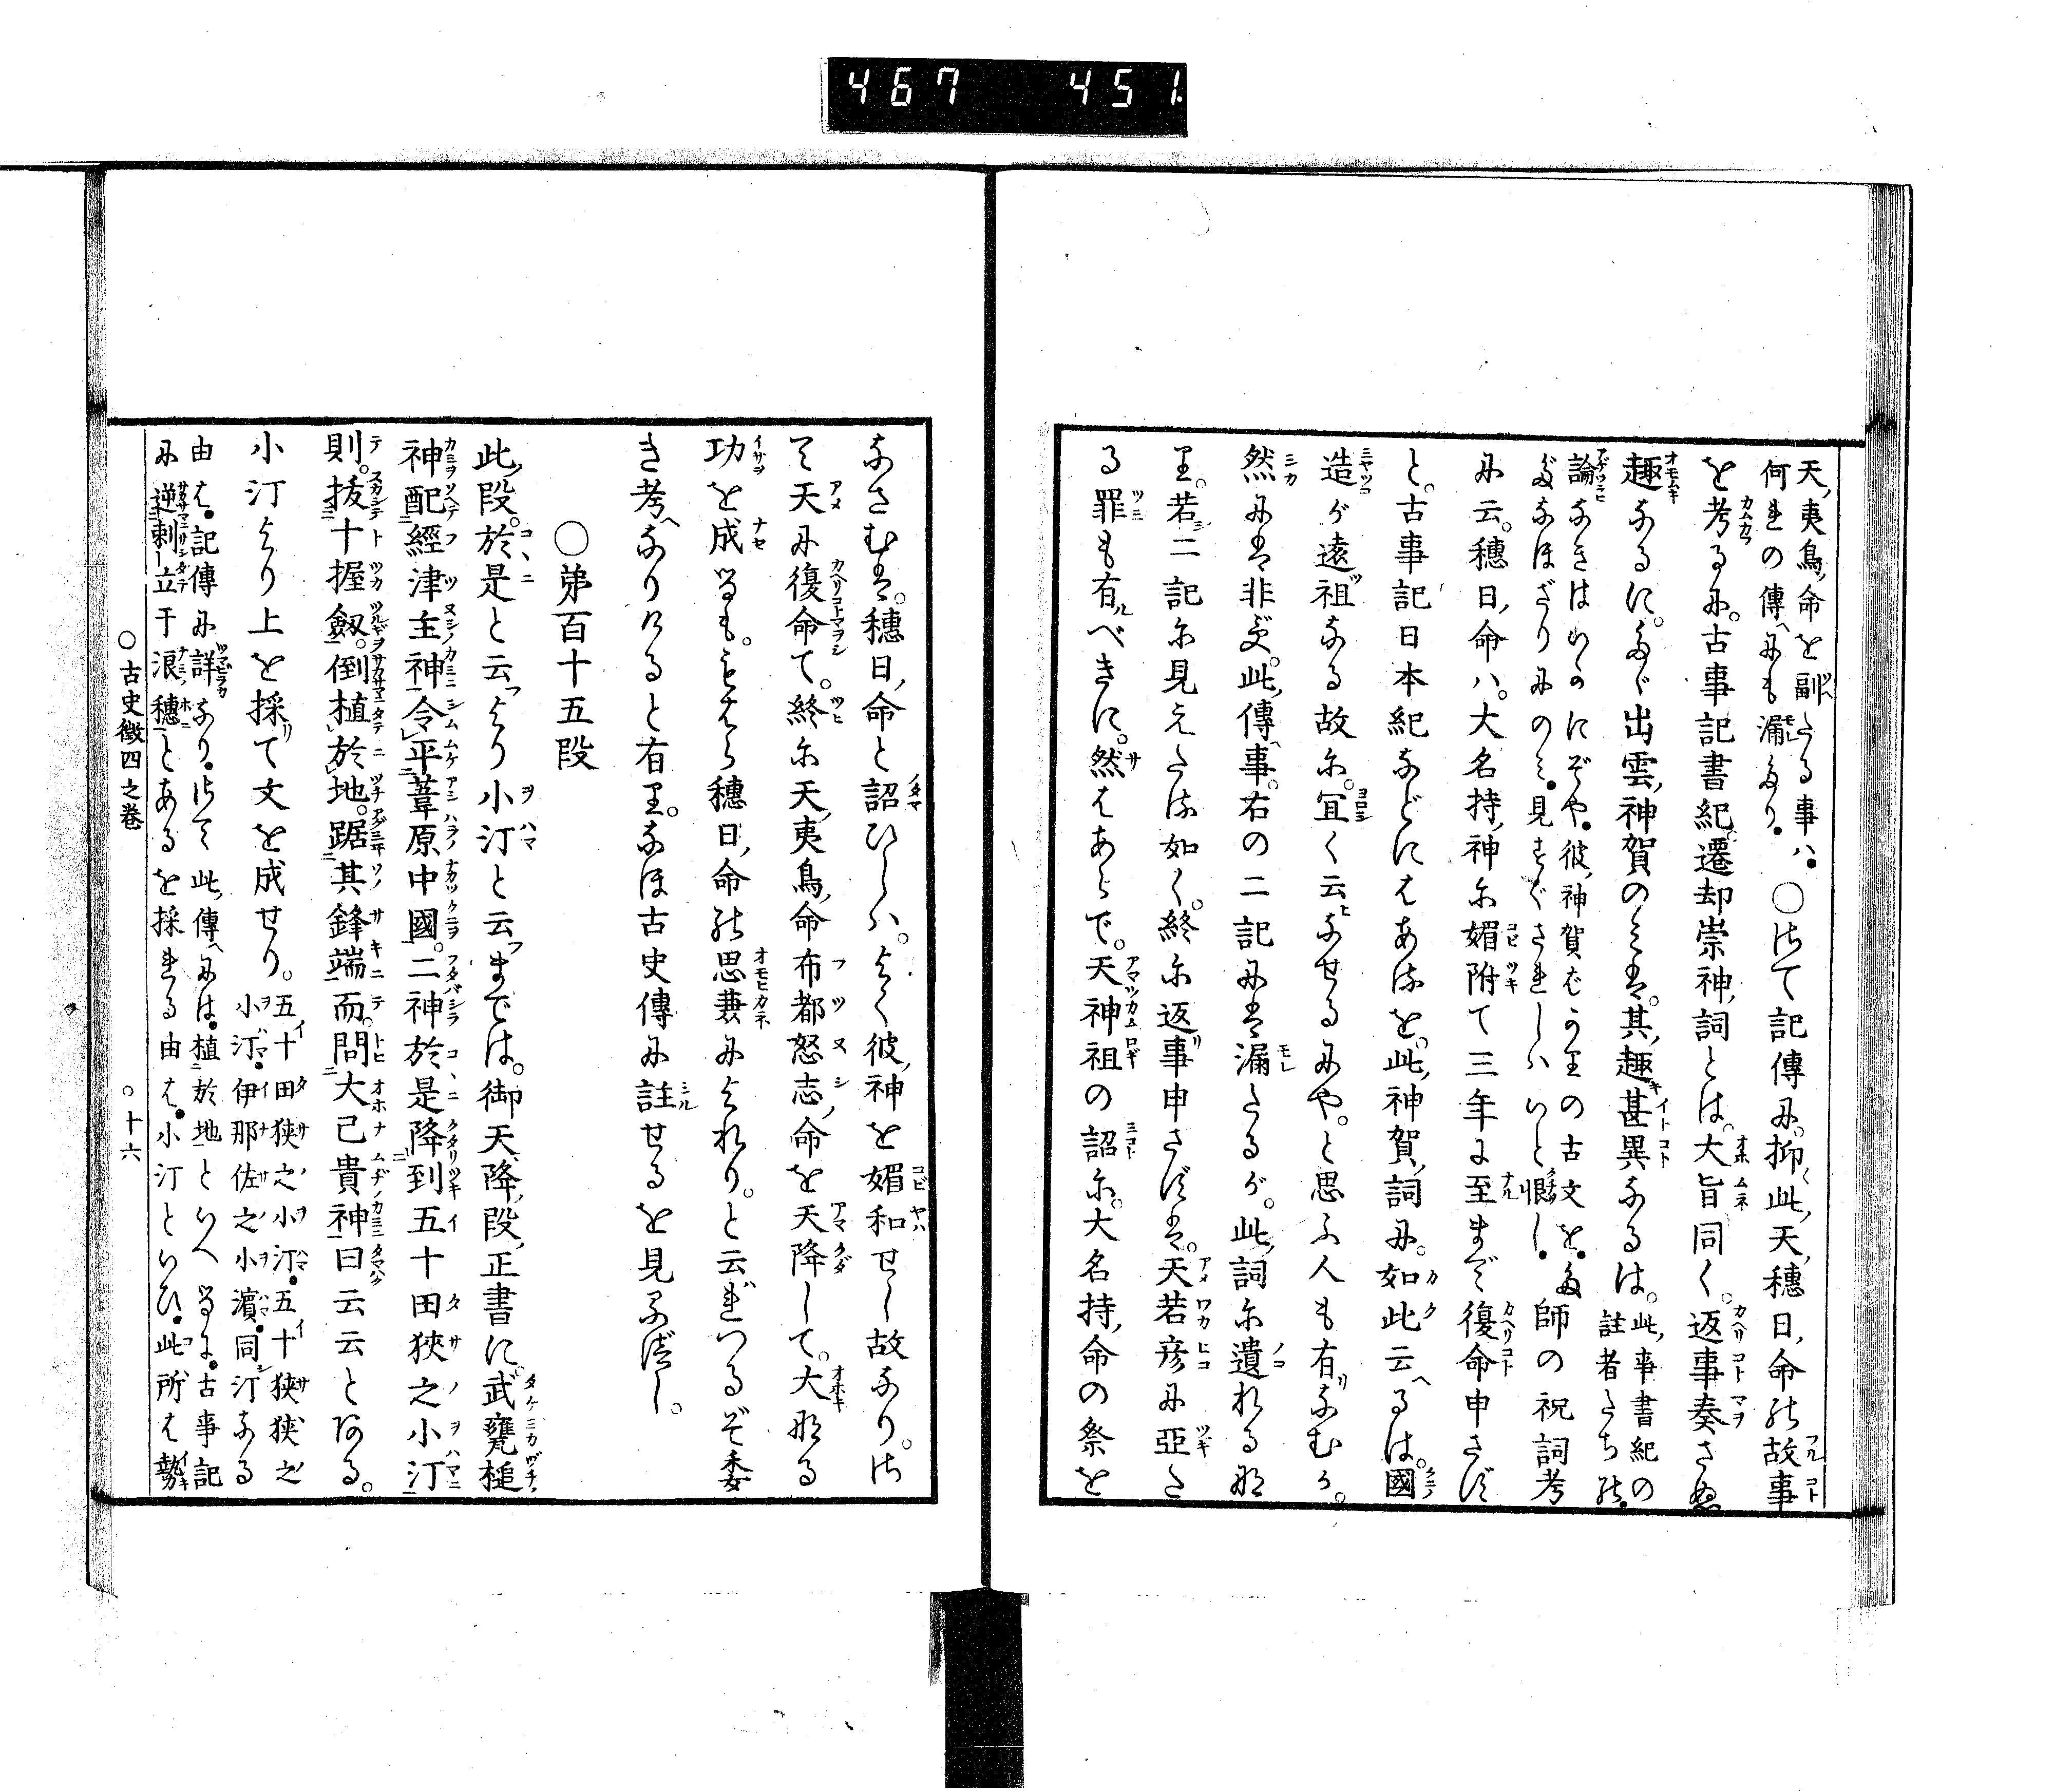 467 451
天夷鳥命を副たる事ハ.
何れの傳にも漏たり.
○はて記傳に。抑此天穗日命の故事
を考るに。古事記書紀。遷却崇神詞とは。大旨同く。返事奏さぬ
趣なるに。たゞ出雲神賀のみは。其趣甚異なるは。
此事書紀の
註者たちの.
論なきはいかにぞや.彼神賀ばかりの古文を.た
だなほざりにのみ.見すぐされしハいと恨し.
師の祝詞考
に云。穗日命ハ。大名持神に媚附て三年に至まで復命申さず
と。古事記日本紀などにはあれを。此神賀詞に。如此云へるは。國
造が遠祖なる故に。宜く云なせるにや。と思ふ人も有なむか。
然には非ず。此傳事。右の二記には漏たるが。此詞に遺れるな
り。若二記に見えたる如く。終に返事申さずは。天若彦に亞た
る罪も有べきに。然はあらで。天神祖の詔に。大名持命の祭を
なさむは。穗日命と詔ひしハ。よく彼神を媚和せし故なり。は
て天に復命て。終に天夷鳥命布都怒志命を天降して。大なる
功を成るも。もはら穗日命の思兼によれり。と云れつるぞ委
き考へなりけると有り。なほ古史傳に註せるを見るべし。
○弟百十五段
此段。於是と云より小汀と云までは。御天降段正書に。武甕槌
神配經津主神令平葦原中國。二神於是降到五十田狹之小汀
則。拔十握劔。倒植於地。踞其鋒端而。問大己貴神曰云云とある。
小汀より上を採て文を成せり。
五十田狹之小汀.五十狹狹之
小汀.伊那佐之小濵.同汀なる
由は.記傳に詳なり.はて此傳には.植於地といへるに.古事記
に逆刺立于浪穗とあるを採れる由は.小汀といひ.此所は勢
○古史徴四之卷
○十六